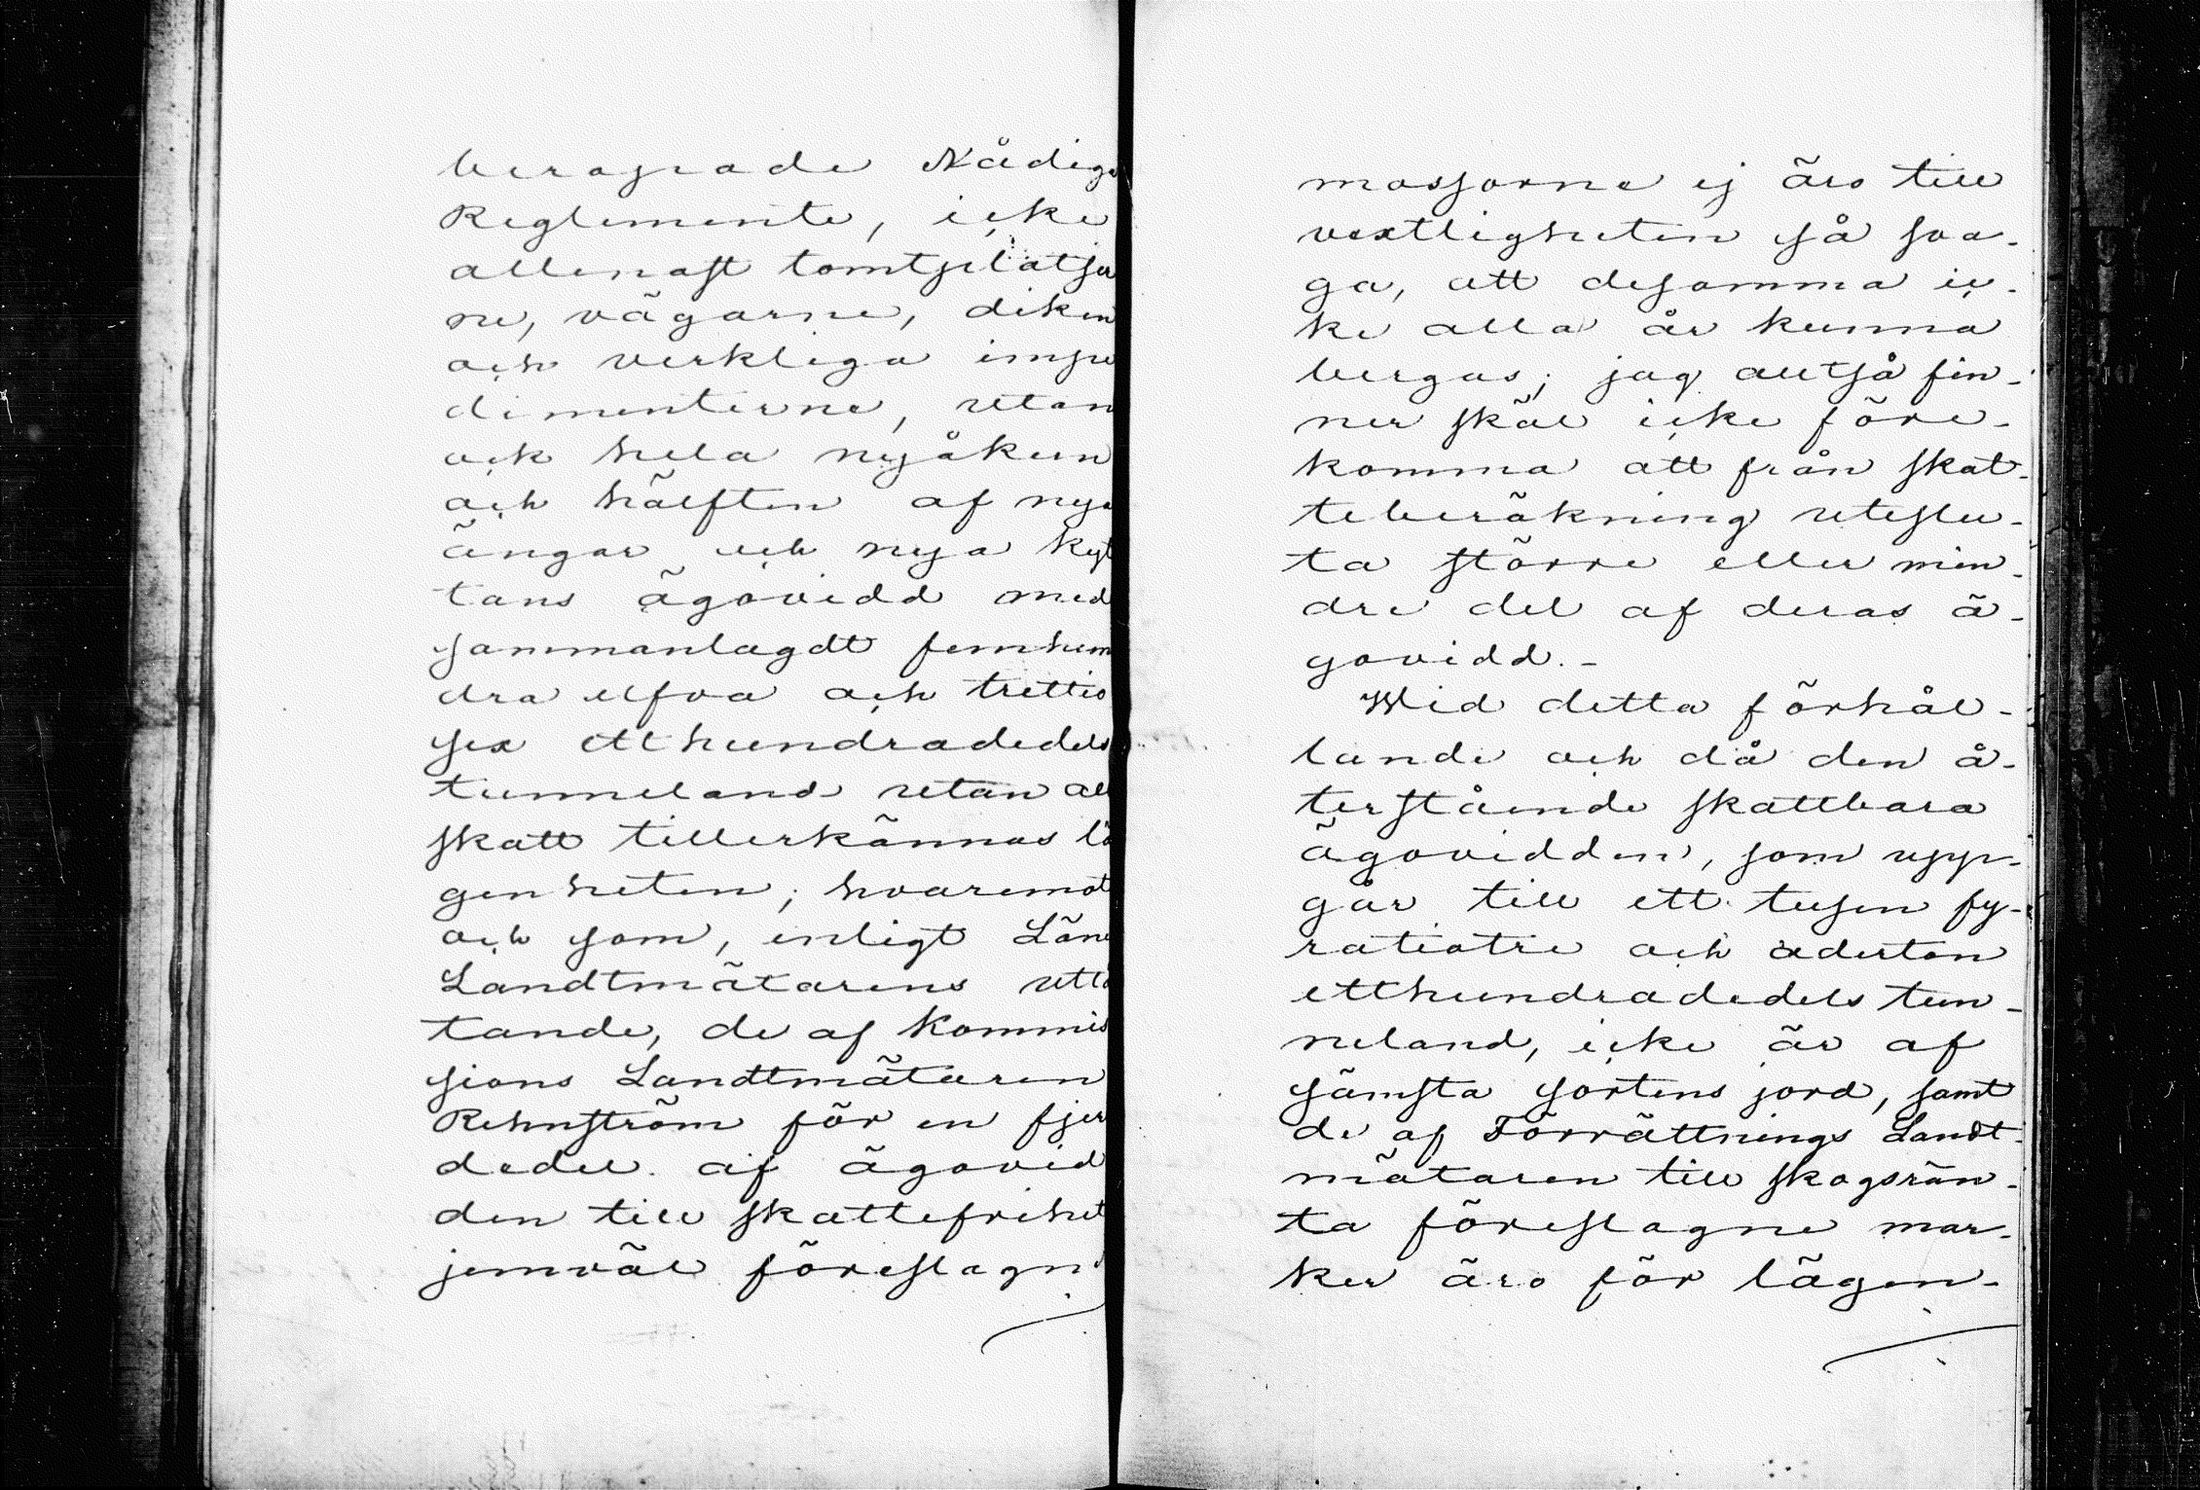 beropade Nådiga
Reglemente, icke
allenast tomtplatser
ne, vägarne, diken
och verkliga impe
dimenterne, utan
ock hela nyåkern
och hälften af nya
ängar och nya kyt
tans ägovidd med
sammanlagdt femhun
dra elfva och trettio
sex etthundradedels
tunneland utan all
skatt tillerkännas lä
genheten; hvaremot
och som, enligt Läns
Landtmätarens utlå
tande, de af Kommis
sions Landtmätaren
Rehnström för en fjer
dedel af ägovid
den till skattefrihet
jemväl föreslagna
mossorne ej äro till
vextligheten så sva-
ga, att desamma ic-
ke alla år kunna
bergas; jag altså fin-
ner skäl icke före-
komma att från skat-
teberäkning uteslu-
ta större eller min-
dre del af deras ä-
govidd.-
Wid detta förhål-
lande och då den å-
terstående skattbara
ägovidden, som upp-
går till ett tusen fy-
ratiotre och aderton
etthundradedels tun-
neland, icke är af
sämsta sortens jord, samt
de af Förrättnings Landt-
mätaren till skogsrän-
ta föreslagne mar-
ker äro för lägen-